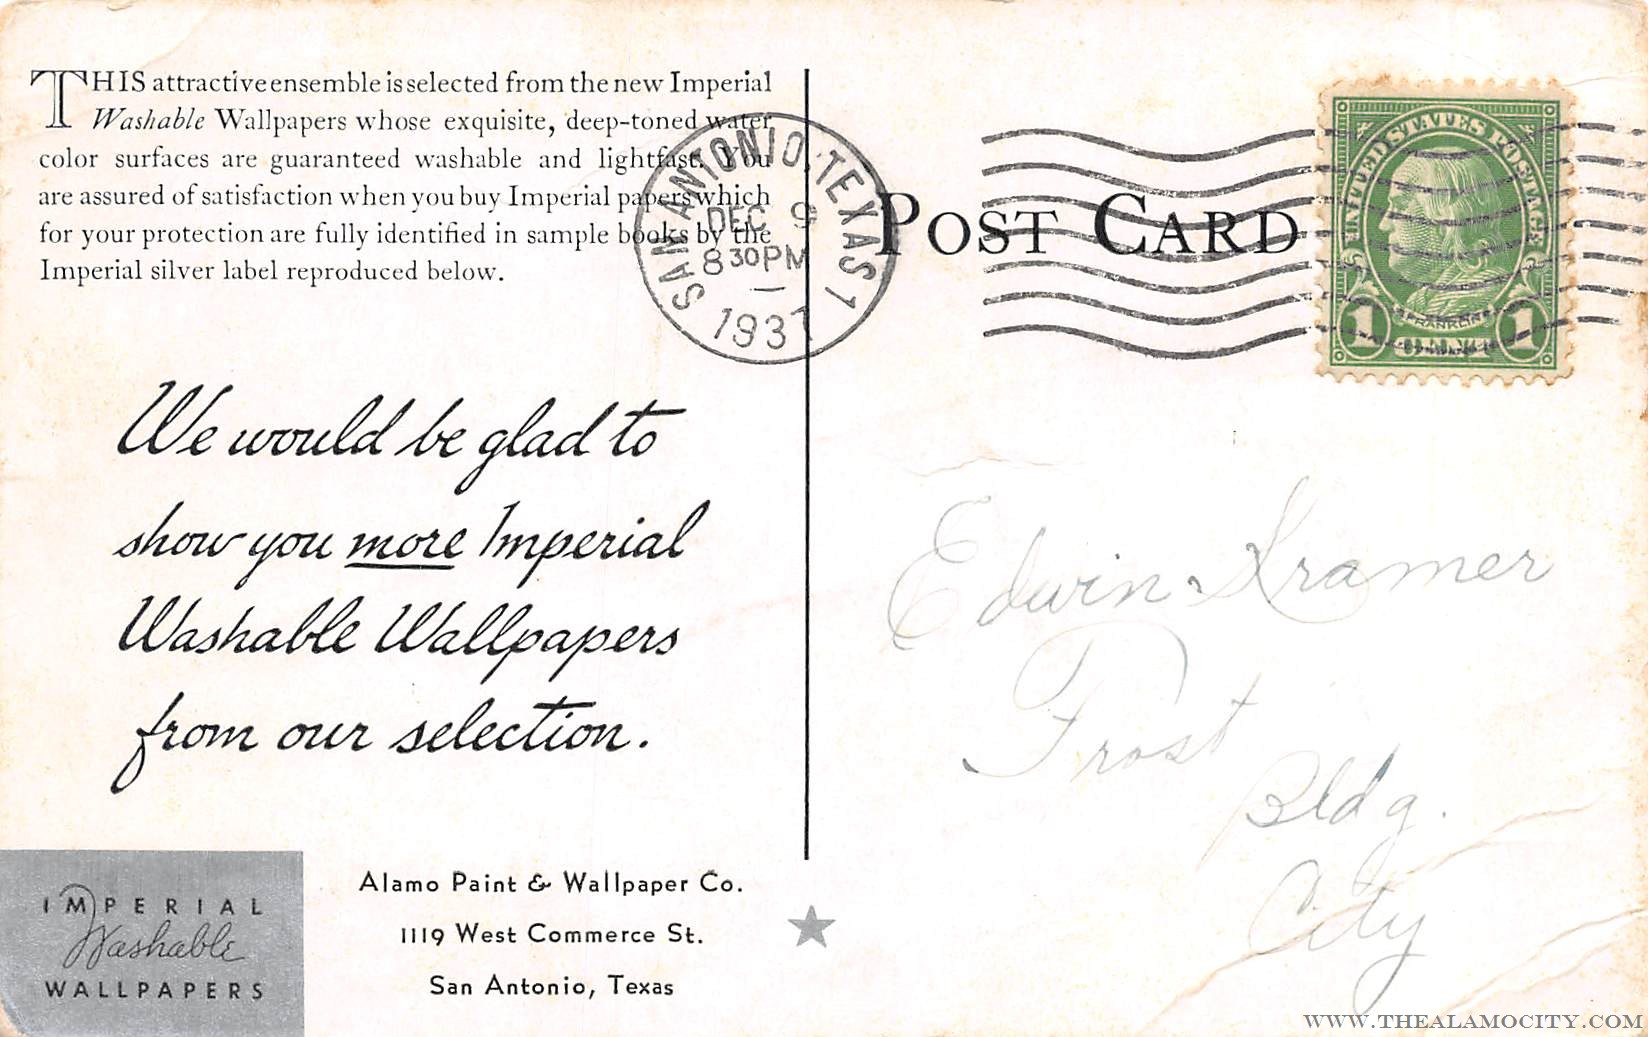 THIS attractive ensemble is selected from the new Imperial
Washable Wallpapers whose exquisite, deep-toned water
color surfaces are guaranteed washable and lightfast. You
are assured of satisfaction when you buy Imperial papers which
for your protection are fully identified in sample books by the
Imperial silver label reproduced below.
We would be glad to
show you more Imperial
Washable Wallpapers
from our selection.
IMPERIAL
Washable
WALLPAPERS
Alamo Paint & Wallpaper Co.
1119 West Commerce St.
San Antonio, Texas
SAN ANTONIO, TEXAS 1
DEC 9
8 30 PM
1937
POST CARD
UNITED STATES POSTAGE
FRANKLIN
1 1
Edwin Kramer
Frost
Bldg.
City
WWW.THEALAMOCITY.COM